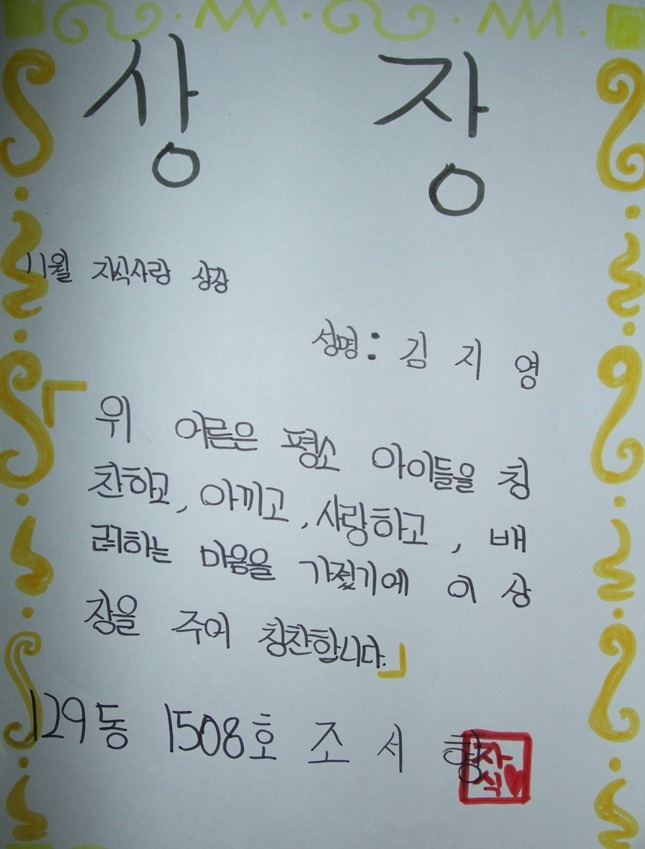 상 장
11월 자식사랑 상장
성명: 김 지 영
「위 어른은 평소 아이들을 칭
찬하고, 아끼고, 사랑하고, 배
려하는 마음을 가졌기에 이 상
장을 주어 칭찬합니다.」
129동 1508호 조 서 형
자
식♥